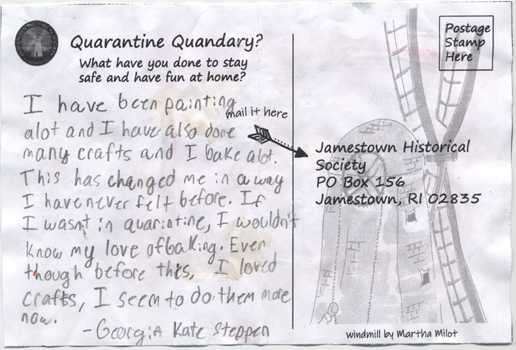 Quarantine Quandary?
What have you done to stay
safe and have fun at home?
I have been painting
alot and I have also done
many crafts and I bake alot.
This has changed me in a way
I have never felt before. If
I wasnt in quarintine, I wouldn't
know my love of baking. Even
though before this, I loved
crafts, I seem to do them more
now.
-Georgia Kate Steppen
mail it here
Postage
Stamp
Here
Jamestown Historical
Society
PO Box 156
Jamestown, RI 02835
windmill by Martha Milot